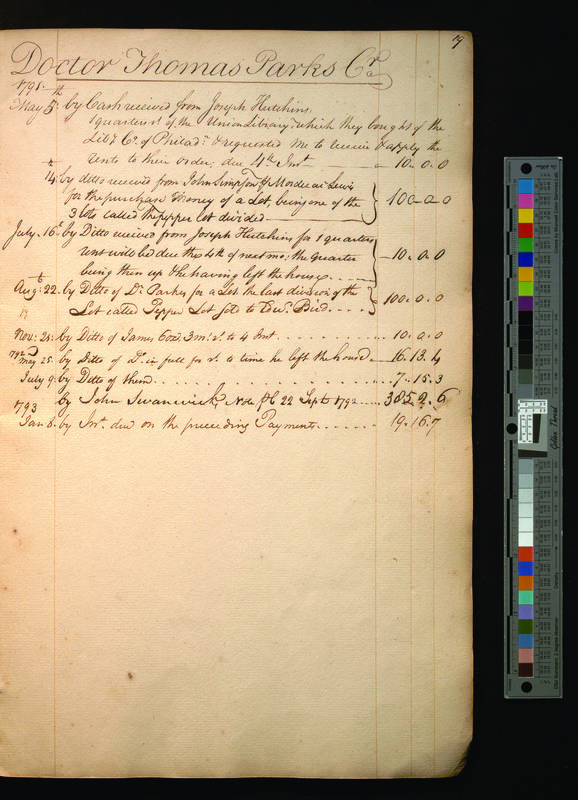 19
Doctor Thomas Parks Cr.
1791.
May 5th by Cash received from Joseph Hutchins.
1 quarters rt. of the Union Library which they bought of the
Liby. Co. of Philada. & requested me to receive & apply the
rents to their order; due 4th Inst — 10.0.0
14th by ditto received from John Simpson & Mordecai Lewis
for the purchase money of a Lot, being one of the
3 lots called the pepper lot divided — 100.0.0
July 16th by Ditto received from Joseph Hutchins for 1 quarters
rent will be due the 4th of next mo; the quarter
being then up & he having left the house — 10.0.0
Augt. 22. by Ditto of Dr. Parkes for a Lot the last division of the
Lot called Pepper Lot sold to Bird 100.0.0
Nov: 21: by Ditto of James 3 mo. rt. to 4 Inst 10.0.0
1792
May 25. by Ditto of Do. in full for rt. to time he left the house 16.13.4
July 9: by Ditto of them 7.15.3
by John Swanwick Note 22 Sept 1792 385.2.6
1793
Jan 8. by Int. due on the preceding Payments 19.16.7
Golden Thread